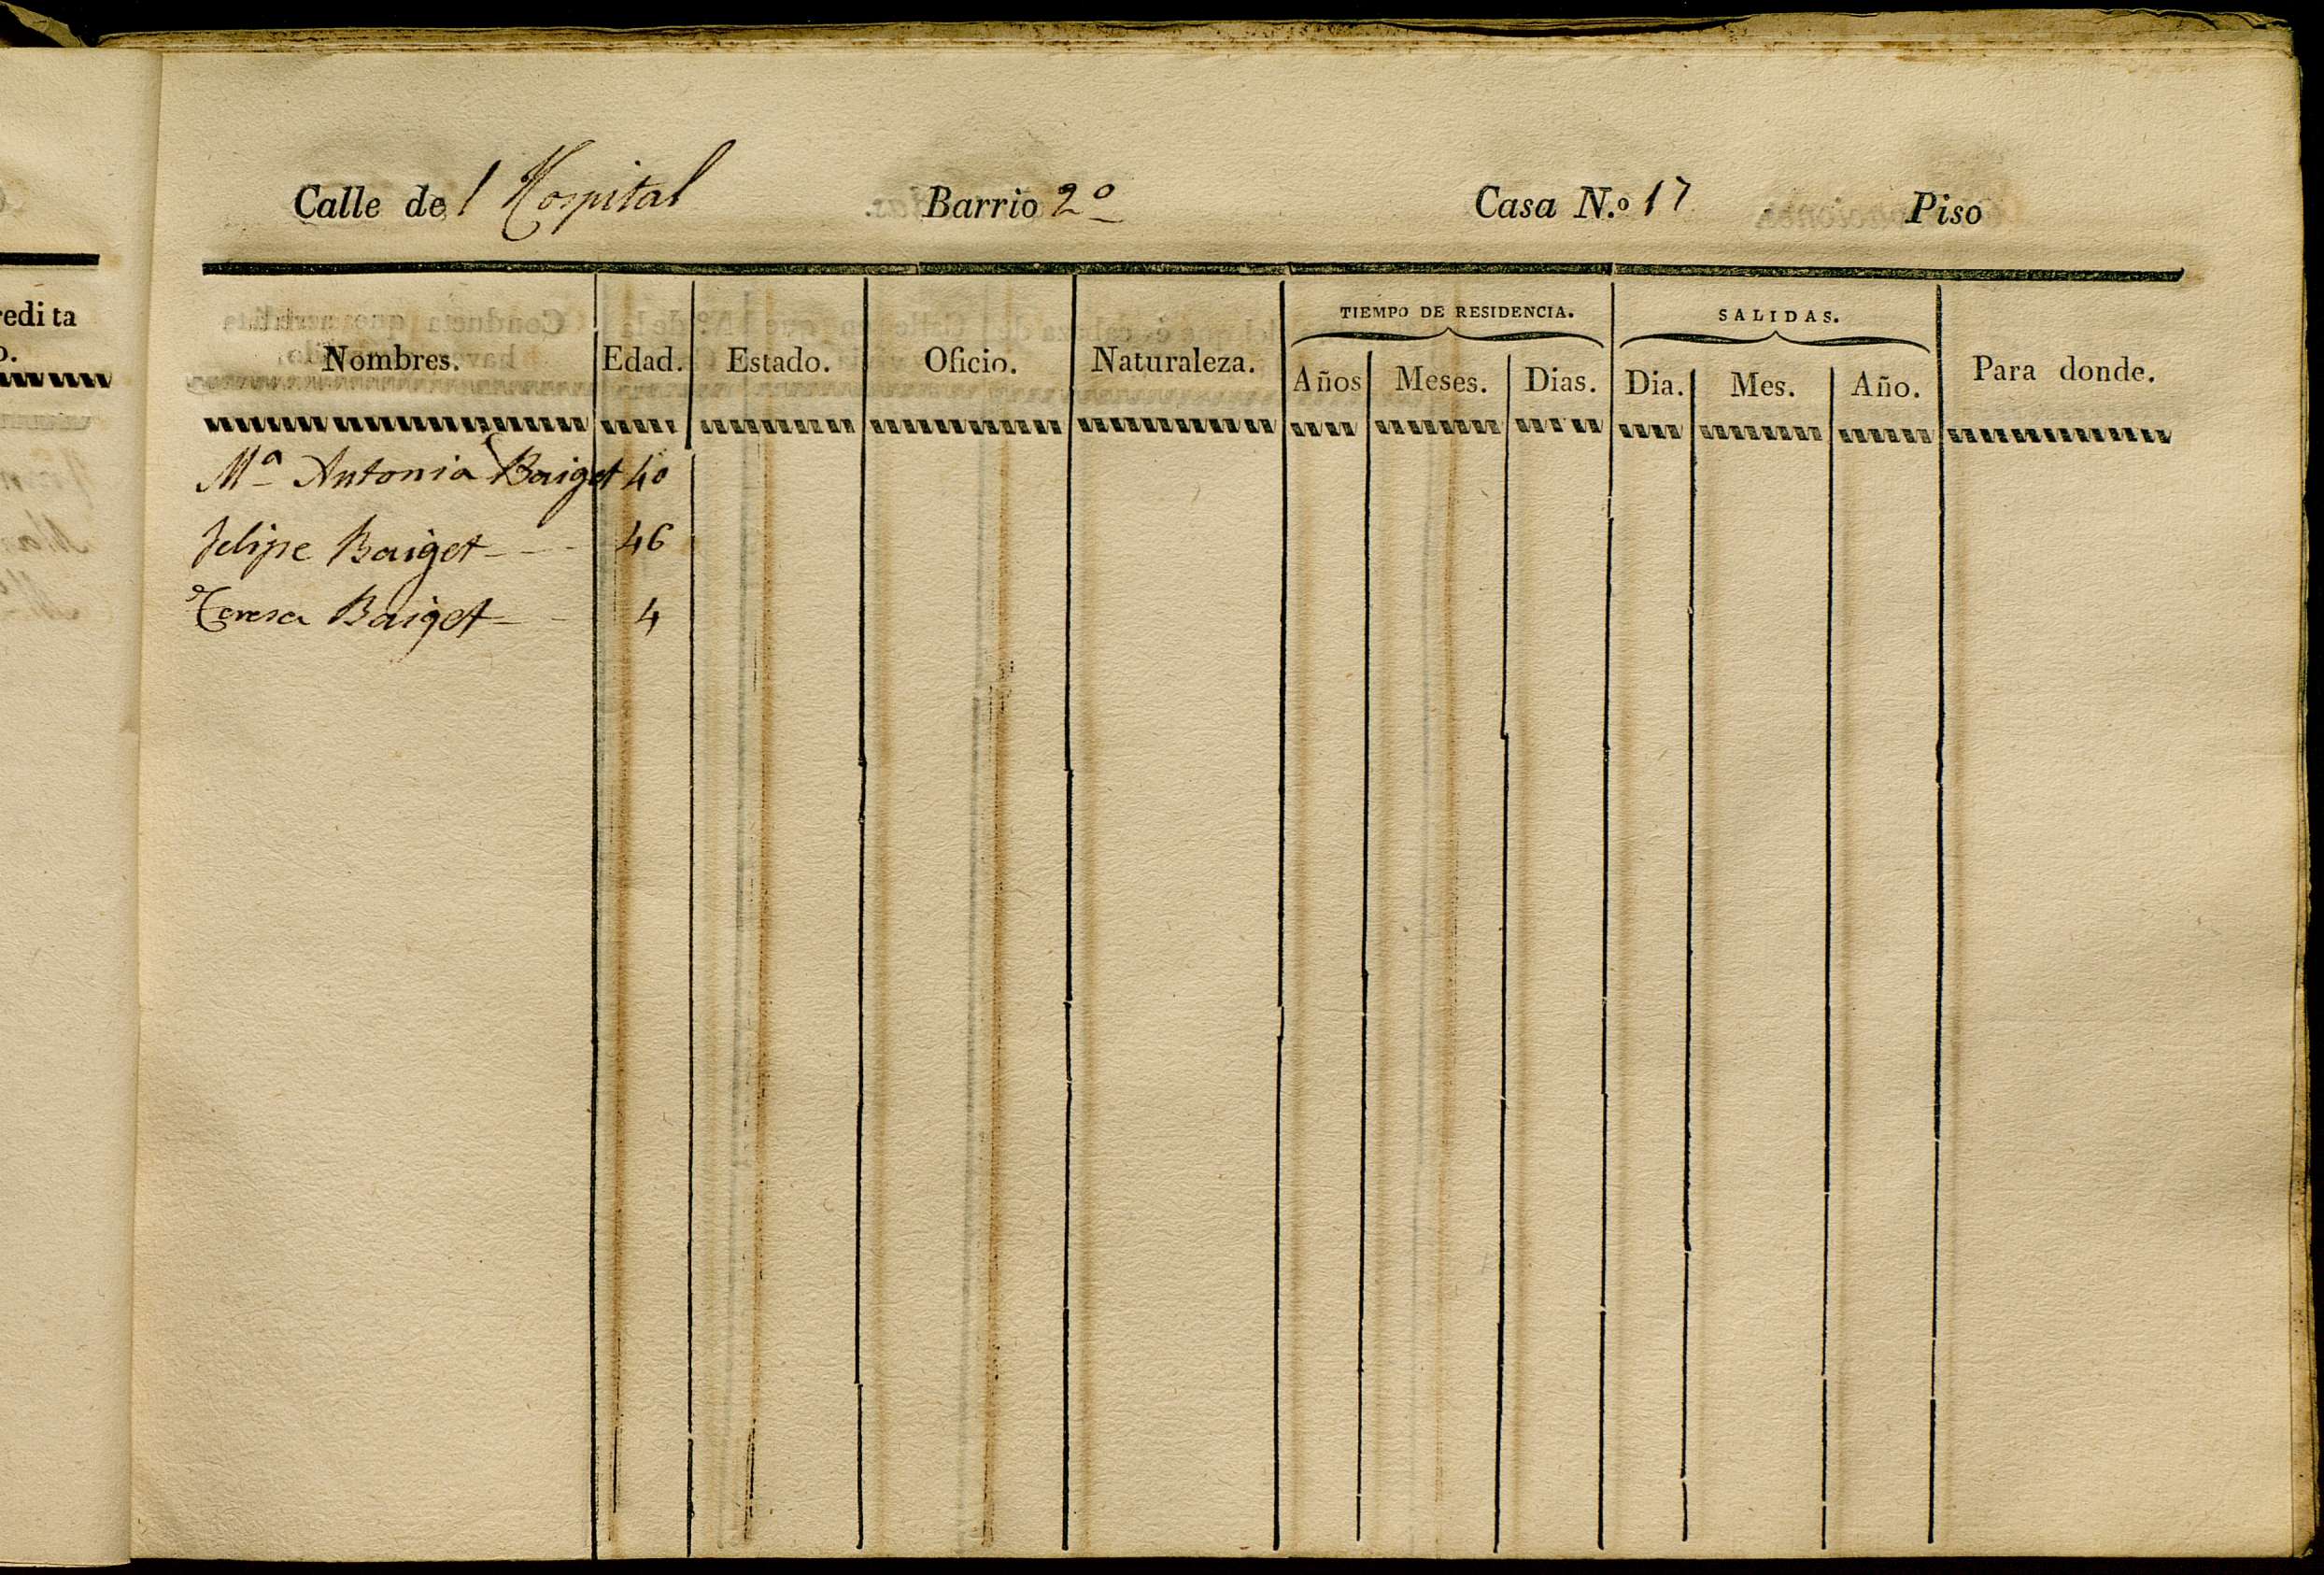 Calle del Hospital Barrio 2º Casa N.º 17 Piso
edita
o.
TIEMPO DE RESIDENCIA. SALIDAS.
Nombres. Edad. Estado. Oficio. Naturaleza. Años Meses. Dias. Dia. Mes. Año. Para donde.
Mª Antonia Baiget 40
Felipe Baiget 46
Teresa Baiget 4